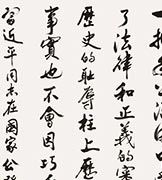 了法律和正義的審
歷史的耻辱柱上歷
事實也不會因巧
習近平同志在國家公祭